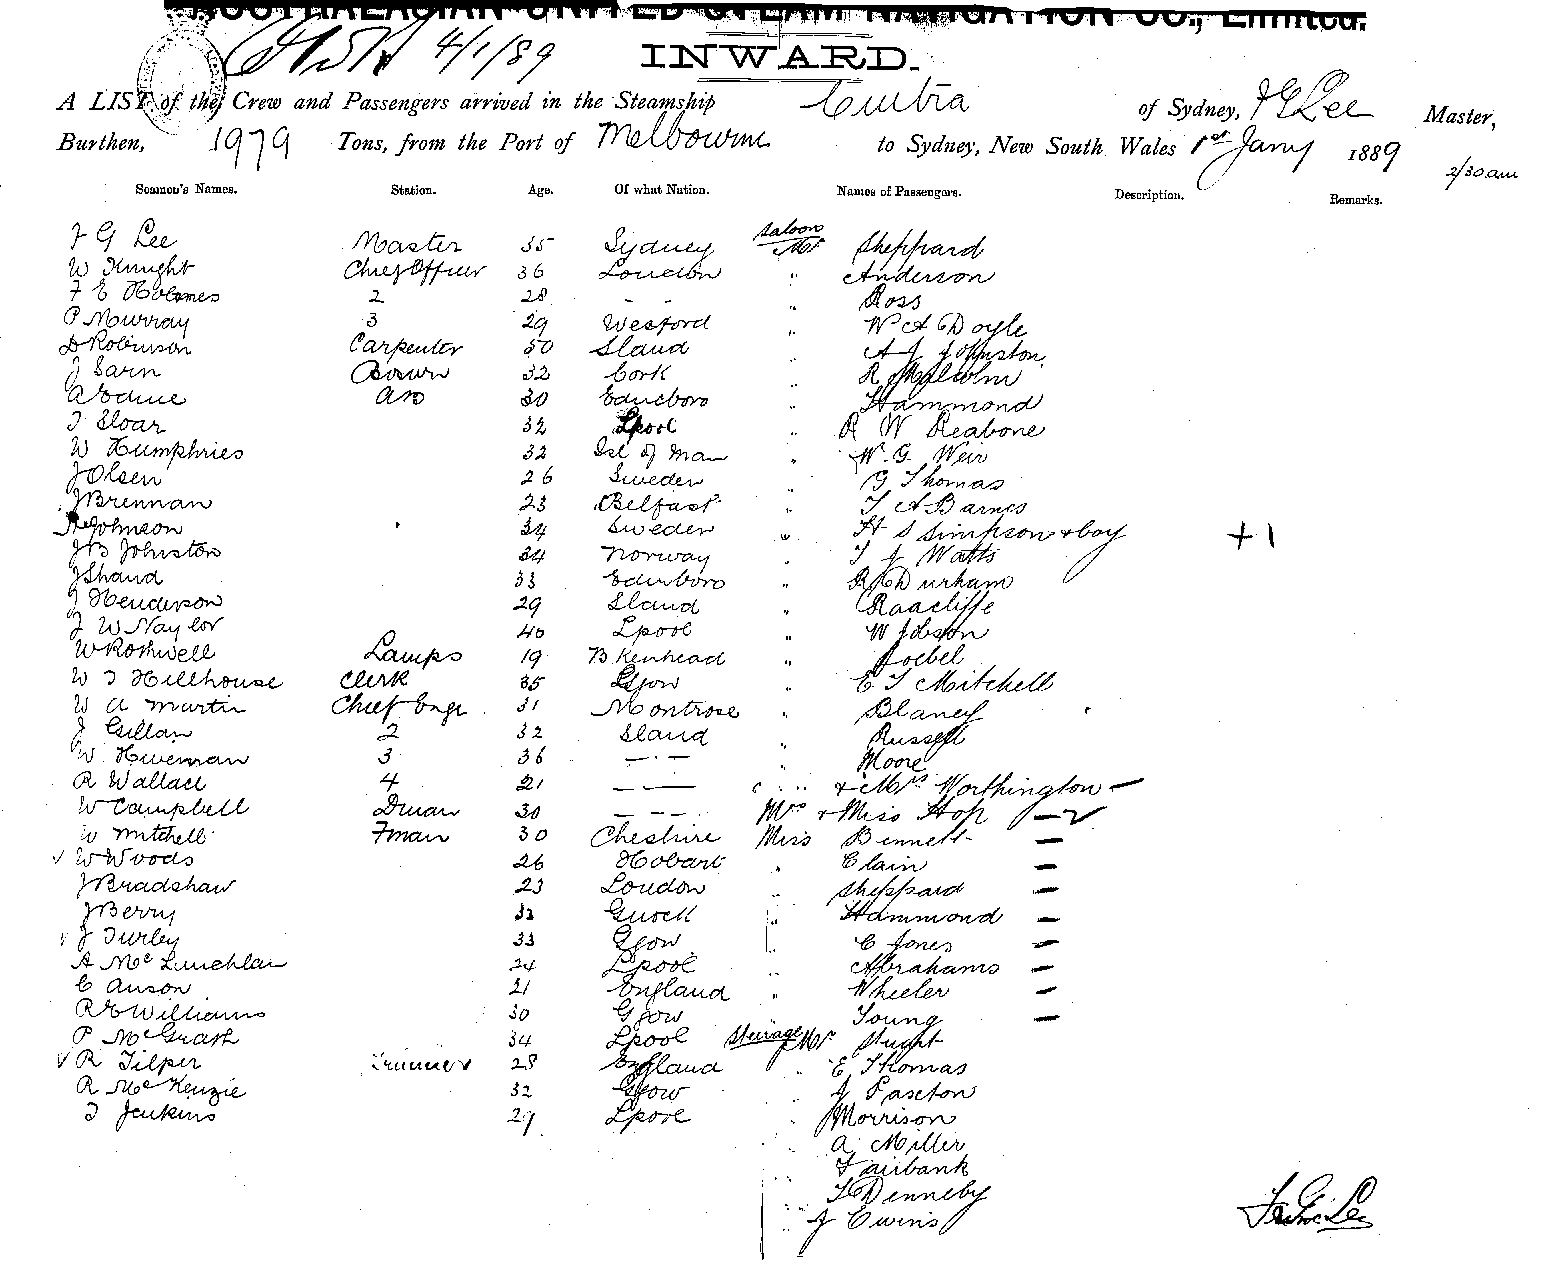 AUSTRALASIAN UNITED STEAM NAVIGATION CO., Limited.
4/1/89
INWARD.
A LIST of the Crew and Passengers arrived in the Steamship of Sydney, J G Lee Master,
Burthen, 1979 Tons, from the Port of Melbourne to Sydney, New South Wales 1st Jany 1889
2/30 am
Seamen's Names. Station. Age. Of what Nation. Names of Passengers. Description. Remarks.
J G Lee Master 35 Sydney Saloon Mr Sheppard
W Knight Chief Officer 36 London " Anderson
F E Holmes 2 28 - - " Ross
P Murray 3 29 Wexford " W A Doyle
D Robinson Carpenter 50 Sland " A J Johnston
J Sarn Bosun 32 Cork " R Malcolm
AB 30 Edinboro " Hammond
T Sloar 32 Lpool " R W Reabone
W Humphries 32 Isl of Man " W. G. Weir
J Olsen 26 Sweden " G Thomas
J Brennan 23 Belfast " T A Barnes
Johnson 34 Sweden " H S Simpson & boy +1
J B Johnston 34 Norway T J Watts
J Shand 33 Edinboro " R Durham
J Henderson 29 Sland " Radcliffe
J W Naylor 40 Lpool " W Jobson
W Rothwell Lamps 19 B Kenhead " Joebel
W T Hillhouse Clerk 35 Gsow " E T Mitchell
W A Martin Chief Engr 31 Montrose " Blaney
J Gillan 2 32 Sland " Russell
W Hineman 3 36 - - - " Moore
R Wallace 4 21 - - - " & Mrs Worthington -
W Campbell Dman 30 - - - Mrs & Miss Hop - 2
W Mitchell Fman 30 Cheshire Miss Bennett -
W Woods 26 Hobart " Clain -
J Bradshaw 23 London " Sheppard -
J Berry 32 Gnock " Hammond -
J Turley 33 Gsow " C Jones -
A McLauchlan 24 Lpool " Abrahams -
C Anson 21 England " Wheeler -
R E Williams 30 Gsow " Young -
P McGrath 34 Lpool Steerage Mr
R Tilper Trimmer 28 England " E Thomas
R McKenzie 32 Gsow " J Paxton
T Jenkins 29 Lpool " Morrison
" A Miller
" Fairbank
" T Denneby
" J Ewins